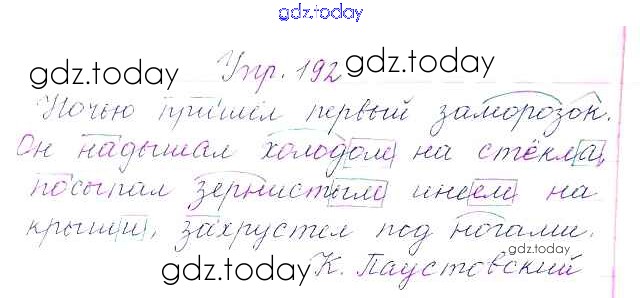 gdz.today
gdz.today Упр. 192 gdz.today
Ночью пришёл первый заморозок.
Он надышал холодом на стёкла,
посыпал зернистым инеем на
крыши, захрустел под ногами.
gdz.today
gdz.today К. Паустовский